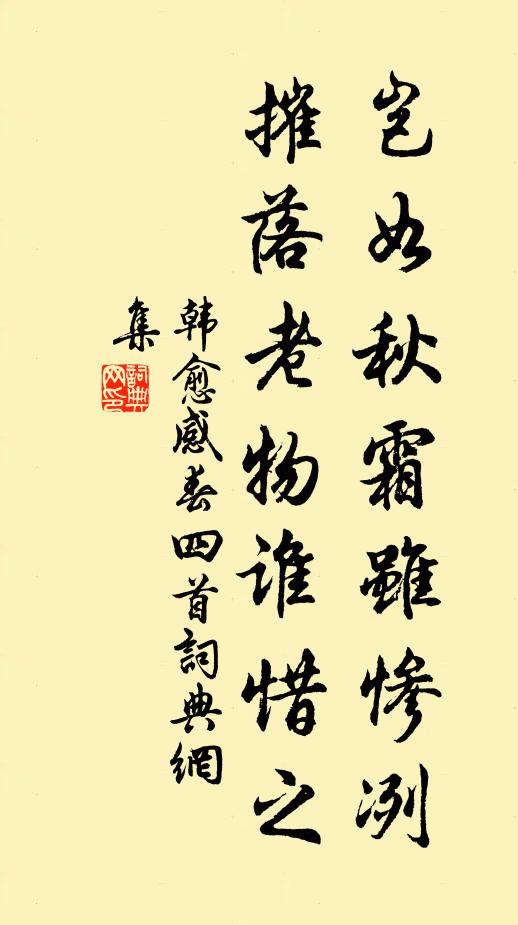 岂如秋霜雖惨冽
摧落老物谁惜之
韩愈感春四首詞典網
集
詞典网印